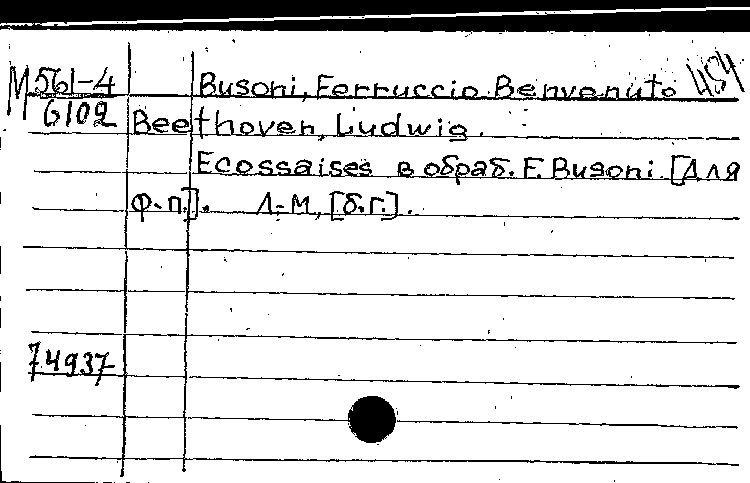 М 561-4 Busoni, Ferruccio Benvenuto 454
6102 Beethoven, Ludwig.
Ecossaises в обраб. F. Busoni. [Для
ф-п.]. Л-М, [б.г.].
74937